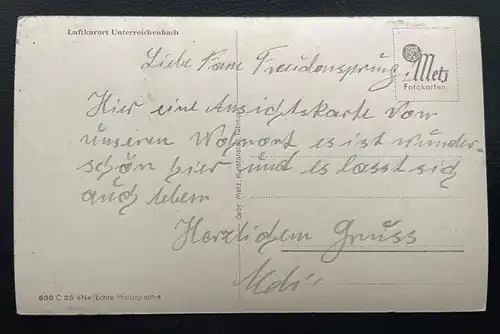 Luftkurort Unterreichenbach
Liebe Frau Freudensprung.
Metz
Fotokarten
Hier eine Ansichtskarte von
unseren Wohnort es ist wunder-
schön hier und es lasst sich
auch leben
Herzlichem Gruss
Gebr. Metz, Kunstanstalt, Tübingen
630 C 25 «Ne» Echte Photographie